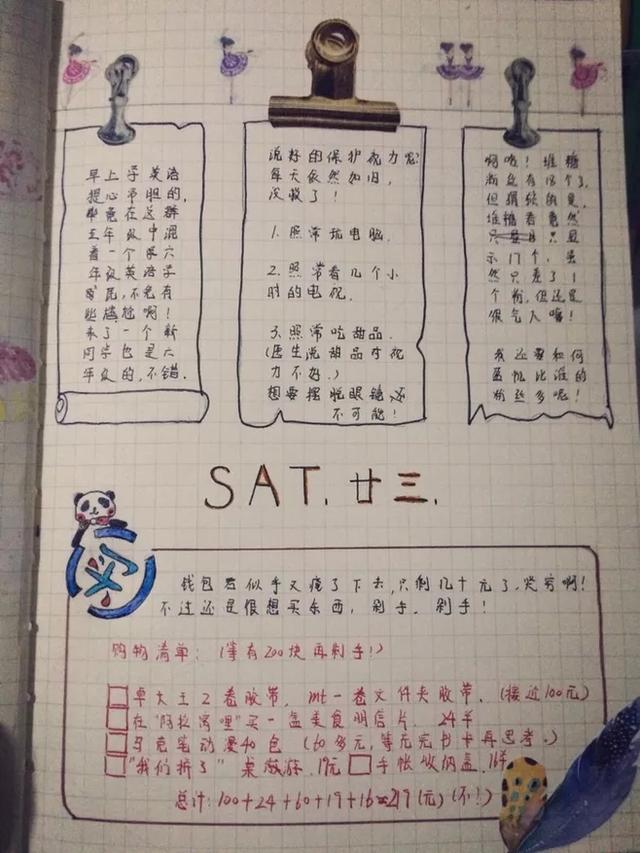 早上学英语
提心吊胆的,
毕竟在这群
五年级中混
着一个准六
年级英语学
尾,不免有
些尴尬啊!
来了一个新
同学也是六
年级的,不错.
说好的保护视力呢?
每天依然如旧,
没救了!
1.照常玩电脑.
2.照常看几个小
时的电视.
3.照常吃甜品.
(医生说甜品对视
力不好.)
想要摆脱眼镜,还
不可能!
啊哈!堆糖
粉丝有18个了,
但
堆糖看竟然
只显
示17个,虽
然只差了1
个粉,但还是
很气人嘛!
我还要和何
比谁的
粉丝多呢!
SAT.廿三.
钱包君似乎又瘪了下去,只剩几十元了,哭穷啊!
不过还是很想买东西,剁手,剁手!
购物清单:(等有200块再剁手!)
卓大王2卷胶带,mt一卷文件夹胶带.(接近100元)
在"阿拉窝哩"买一盒美食明信片.24羊
马克笔动漫40包(60多元,等充完书卡再思考.)
"我们拆了"桌激游.19元 手帐收纳盒.16羊
总计:100+24+60+19+16≈219(元)(不!)